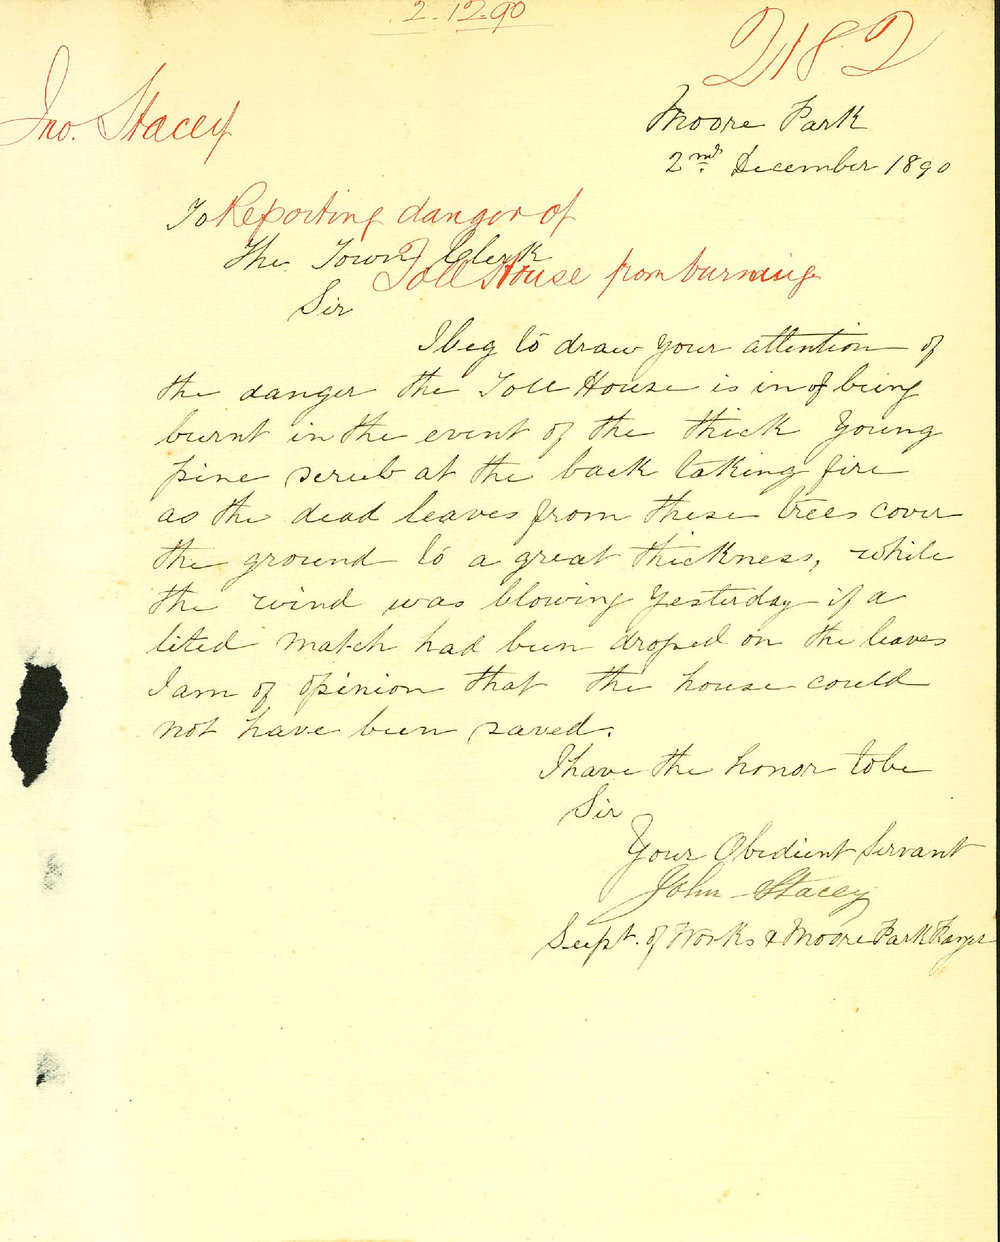 2.12.90
2182
Jno. Stacey
Moore Park
2nd. December 1890
To
Reporting danger of
The Town Clerk
Toll House from burning
Sir
I beg to draw your attention of
the danger the Toll House is in of being
burnt in the event of the thick Young
pine scrub at the back taking fire
as the dead leaves from these trees cover
the ground to a great thickness, while
the wind was blowing Yesterday if a
lited match had been droped on the leaves
I am of opinion that the house could
not have been saved.
I have the honor to be
Sir
Your Obedient Servant
John Stacey
Supt. of Works & Moore Park